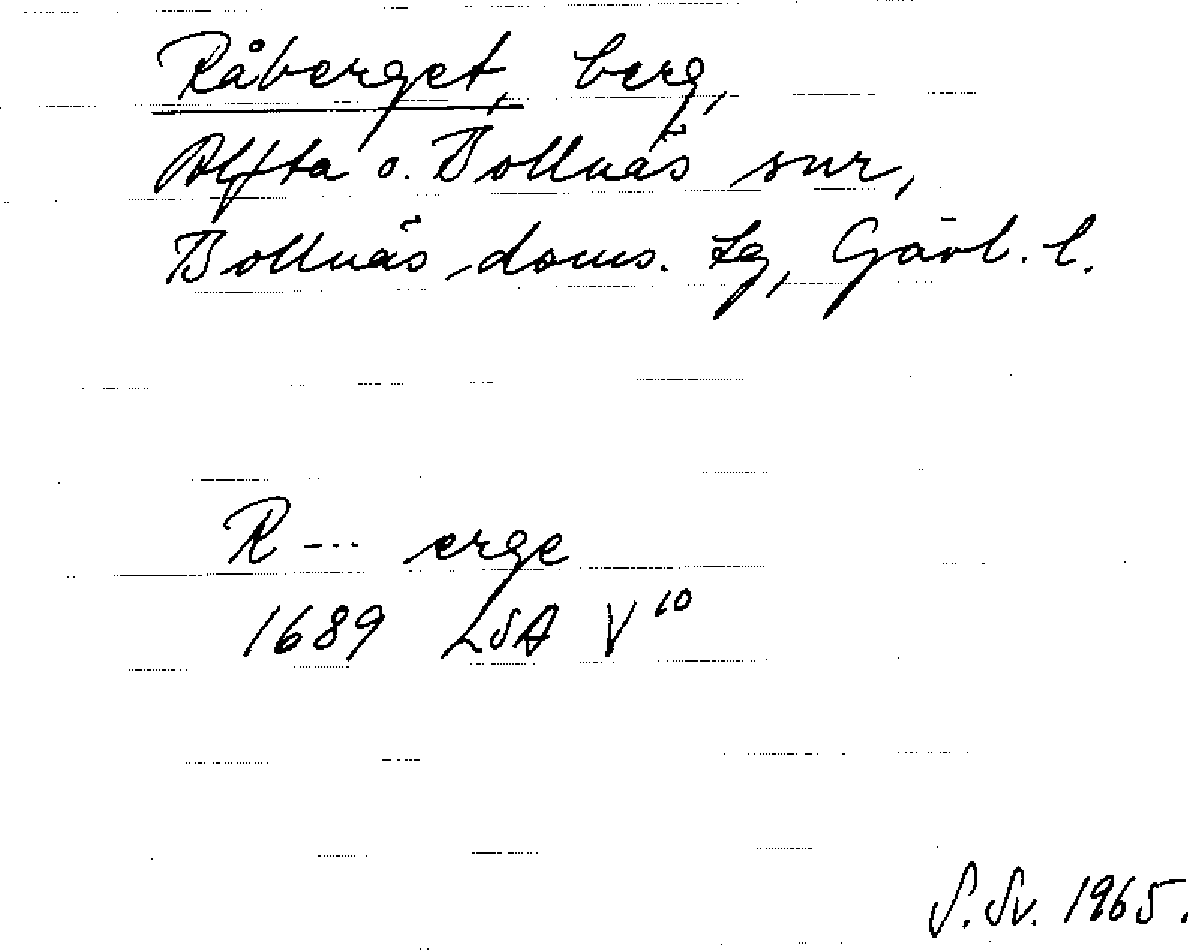 Råberget, berg,
Alfta o. Bollnäs snr,
Bollnäs doms. tg, Gävl. l.
R --- erge
1689 LSA V 10
S. Sv. 1965.